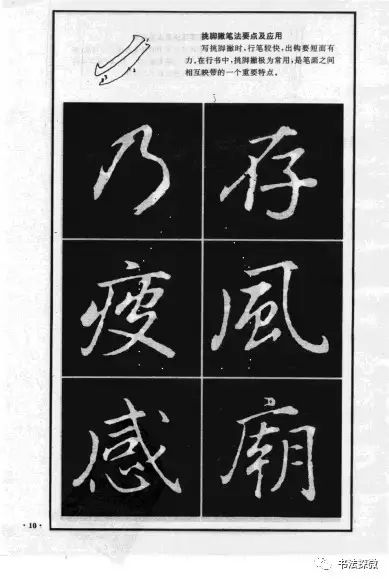 挑脚撇笔法要点及应用
写挑脚撇时，行笔较快，出钩要短而有
力。在行书中，挑脚撇极为常用，是笔画之间
相互映带的一个重要特点。
乃 存
瘦 風
感 廟
·10·
书法探微